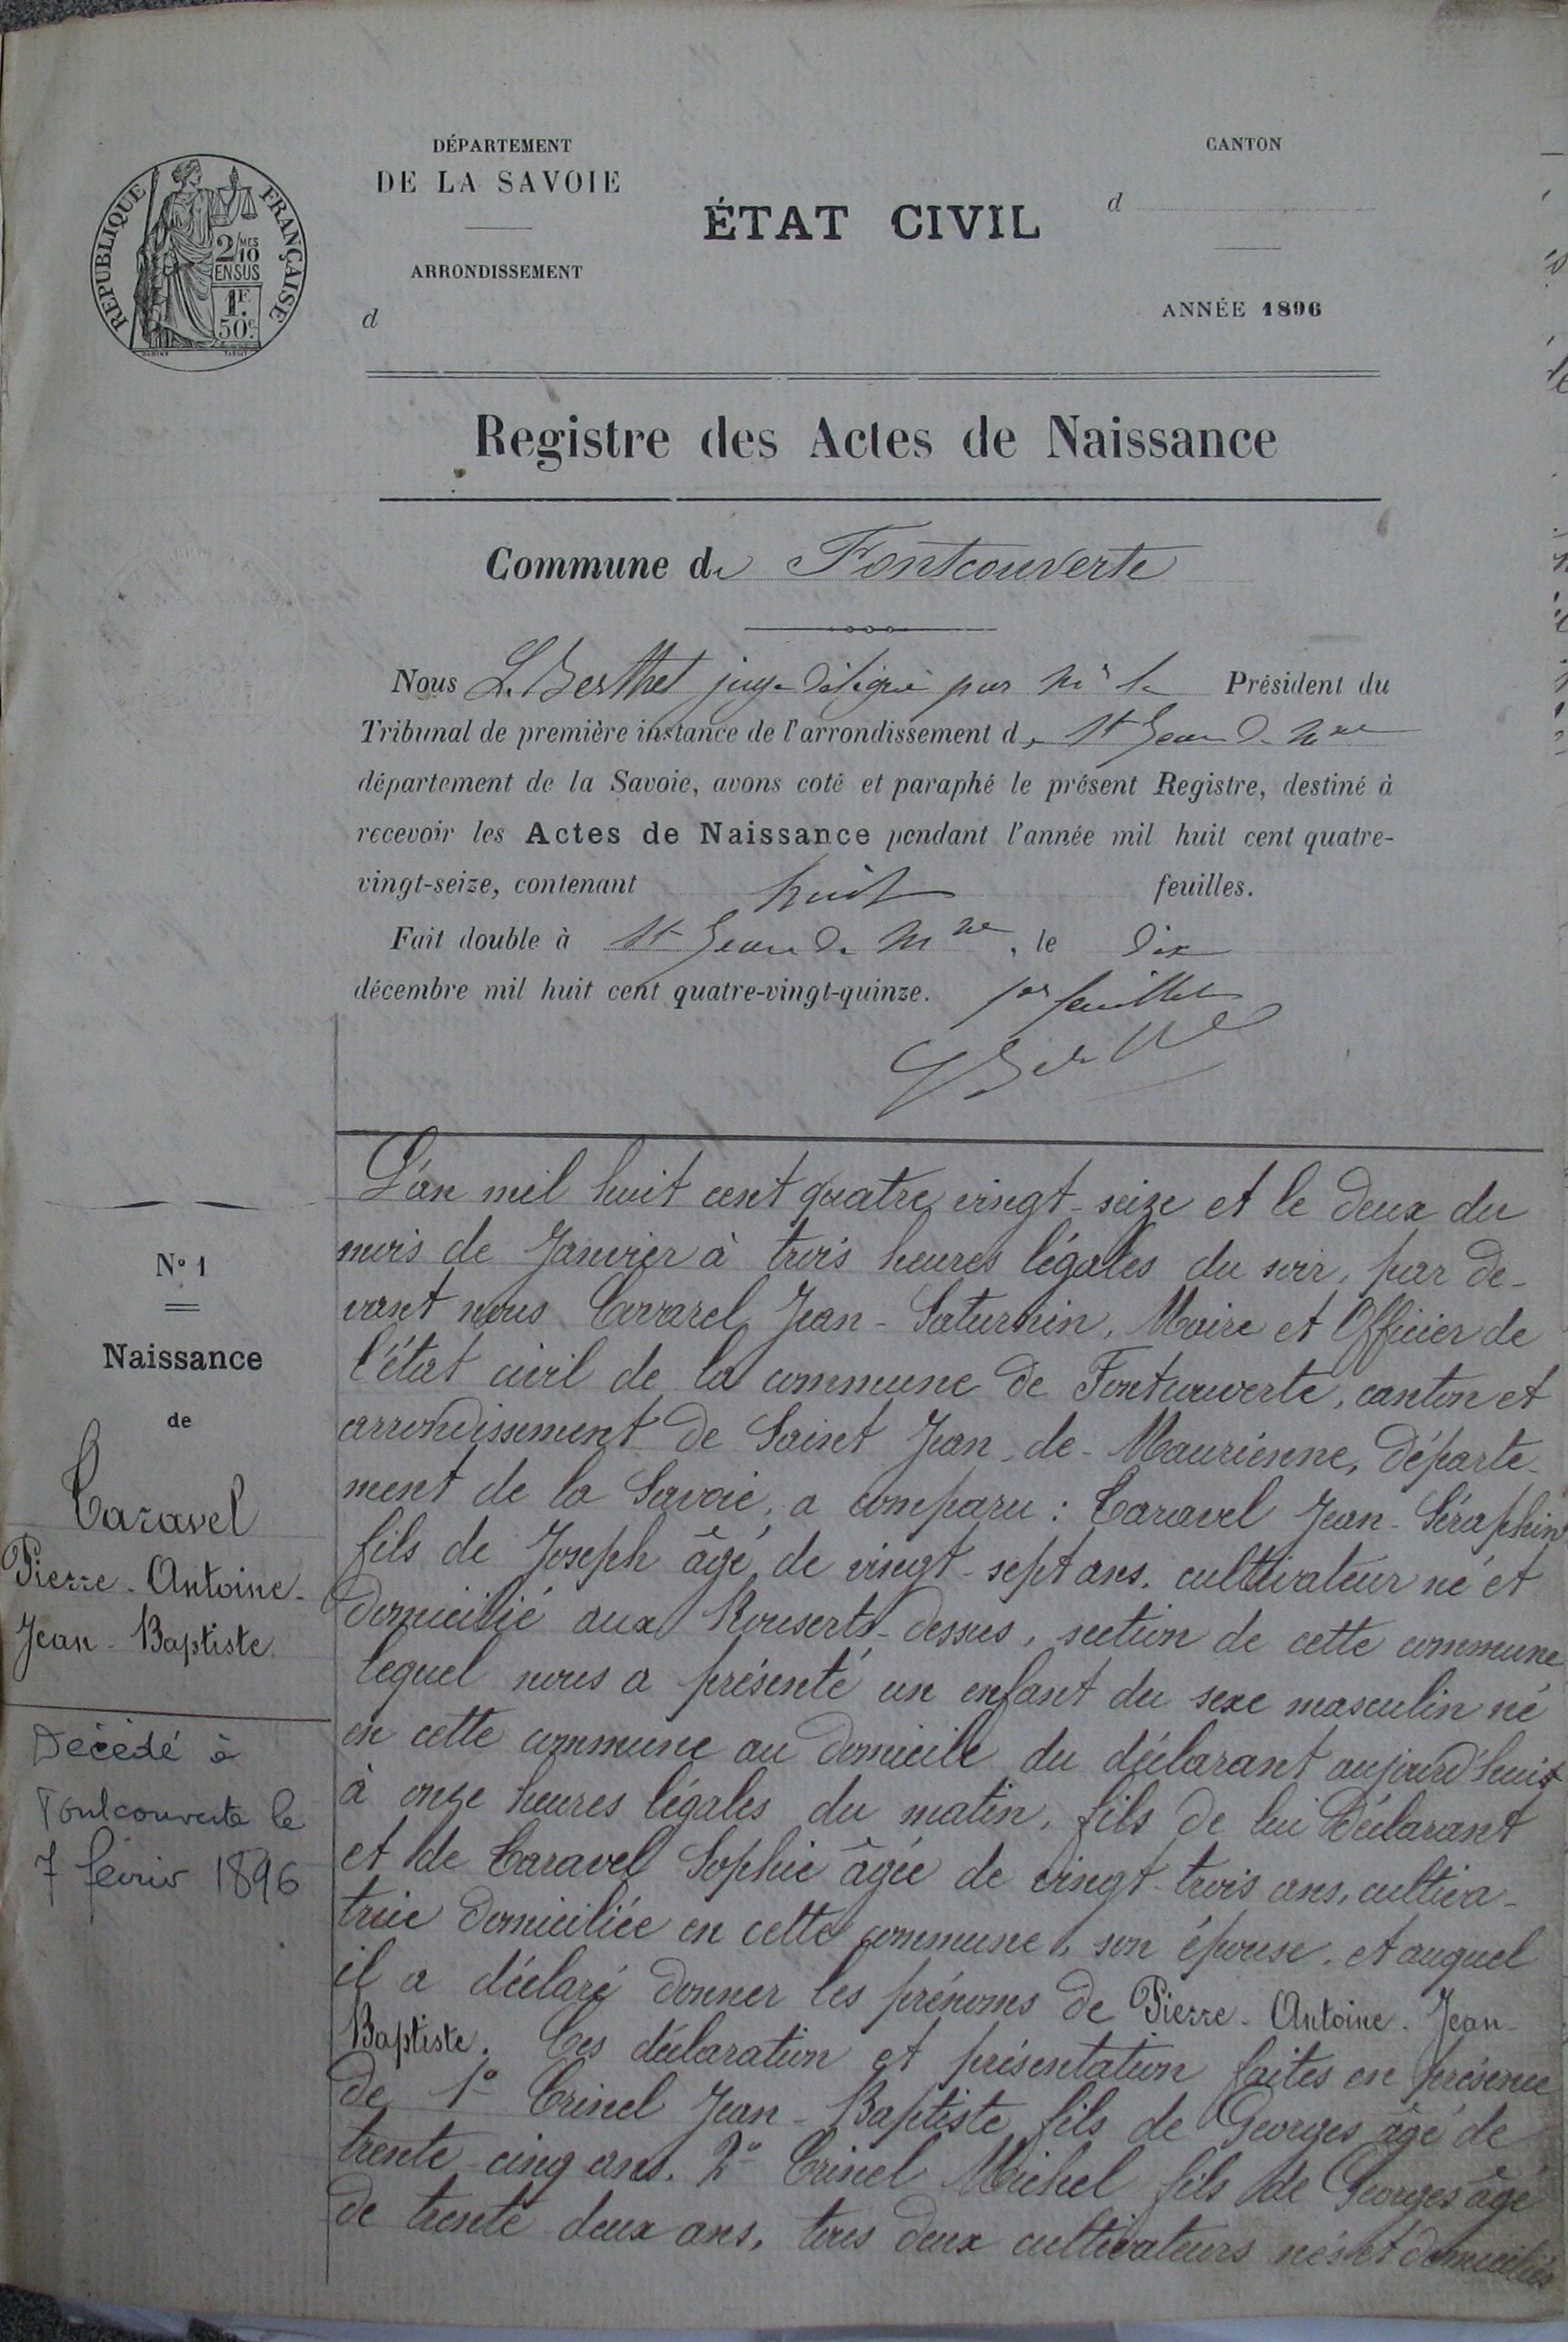 RÉPUBLIQUE FRANÇAISE
2/10 MES
EN SUS
1F.
50c.
DÉPARTEMENT
DE LA SAVOIE
ARRONDISSEMENT
d
ÉTAT CIVIL
CANTON
d
ANNÉE 1896
Registre des Actes de Naissance
Commune de Fontcouverte
Nous L. Berthet juge délégué par Mr le Président du
Tribunal de première instance de l'arrondissement de St Jean de Mne
département de la Savoie, avons coté et paraphé le présent Registre, destiné à
recevoir les Actes de Naissance pendant l'année mil huit cent quatre-
vingt-seize, contenant huit feuilles.
Fait double à St Jean de Mne, le dix
décembre mil huit cent quatre-vingt-quinze.
1er feuillet
N° 1
Naissance
de
Caravel
Pierre-Antoine-
Jean-Baptiste
Décédé à
Fontcouverte le
7 février 1896
L'an mil huit cent quatre vingt-seize et le deux du
mois de Janvier à trois heures légales du soir, par de-
vant nous Covarel Jean-Saturnin, Maire et Officier de
l'état civil de la commune de Fontcouverte, canton et
arrondissement de Saint Jean-de-Maurienne, départe-
ment de la Savoie, a comparu : Caravel Jean-Séraphin
fils de Joseph âgé de vingt-sept ans, cultivateur né et
domicilié aux dessus, section de cette commune
lequel nous a présenté un enfant du sexe masculin né
en cette commune au domicile du déclarant aujourd'hui
à onze heures légales du matin, fils de lui déclarant
et de Caravel Sophie âgée de vingt-trois ans, cultiva-
trice domiciliée en cette commune, son épouse. et auquel
il a déclaré donner les prénoms de Pierre-Antoine-Jean-
Baptiste. Ces déclaration et présentation faites en présence
de 1° Crinel Jean-Baptiste fils de Georges âgé de
trente-cinq ans. 2° Crinel Michel fils de Georges âgé
de trente deux ans, tous deux cultivateurs nés et domiciliés